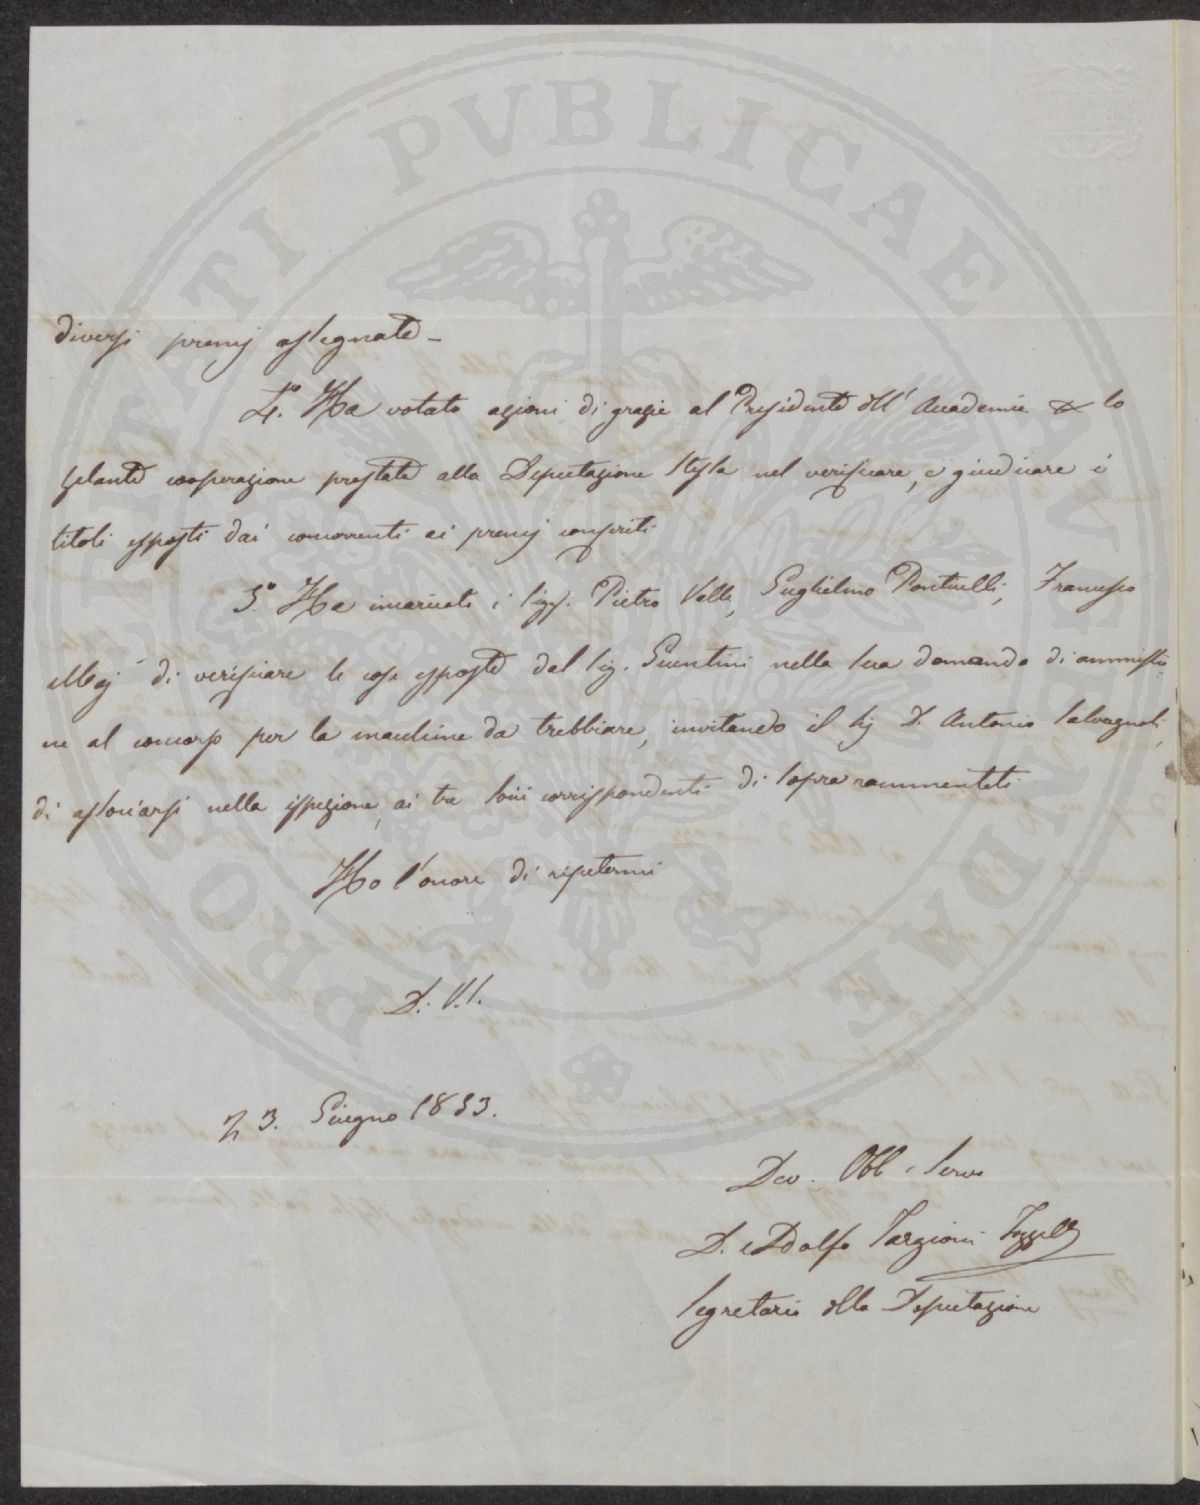 PROSPERITATI PUBLICAE AUGENDAE
diversi premj assegnate –
4.° Ha votato azioni di grazie al Presidente dell' Accademia & lo
zelante cooperazione prestate alla Deputazione stessa nel verificare, e giudicare i
titoli esposti dai concorrenti ai premj conferiti
5.° Ha incaricati i Sigg. Pietro Valle, Guglielmo Ponticelli, Francesco
di verificare le cose esposte dal Sig. Guentini nella sua domanda di ammissio
ne al concorso per la macchina da trebbiare, invitando il Sig D. Antonio Salvagnoli,
di associarsi nella ispezione, ai tre soci corrispondenti di sopra rammentati
Ho l'onore di ripetermi
D. V. S.
3. Giugno 1853.
Dev. Obb. Servo
D. Adolfo Targioni Tozzetti
Segretario della Deputazione